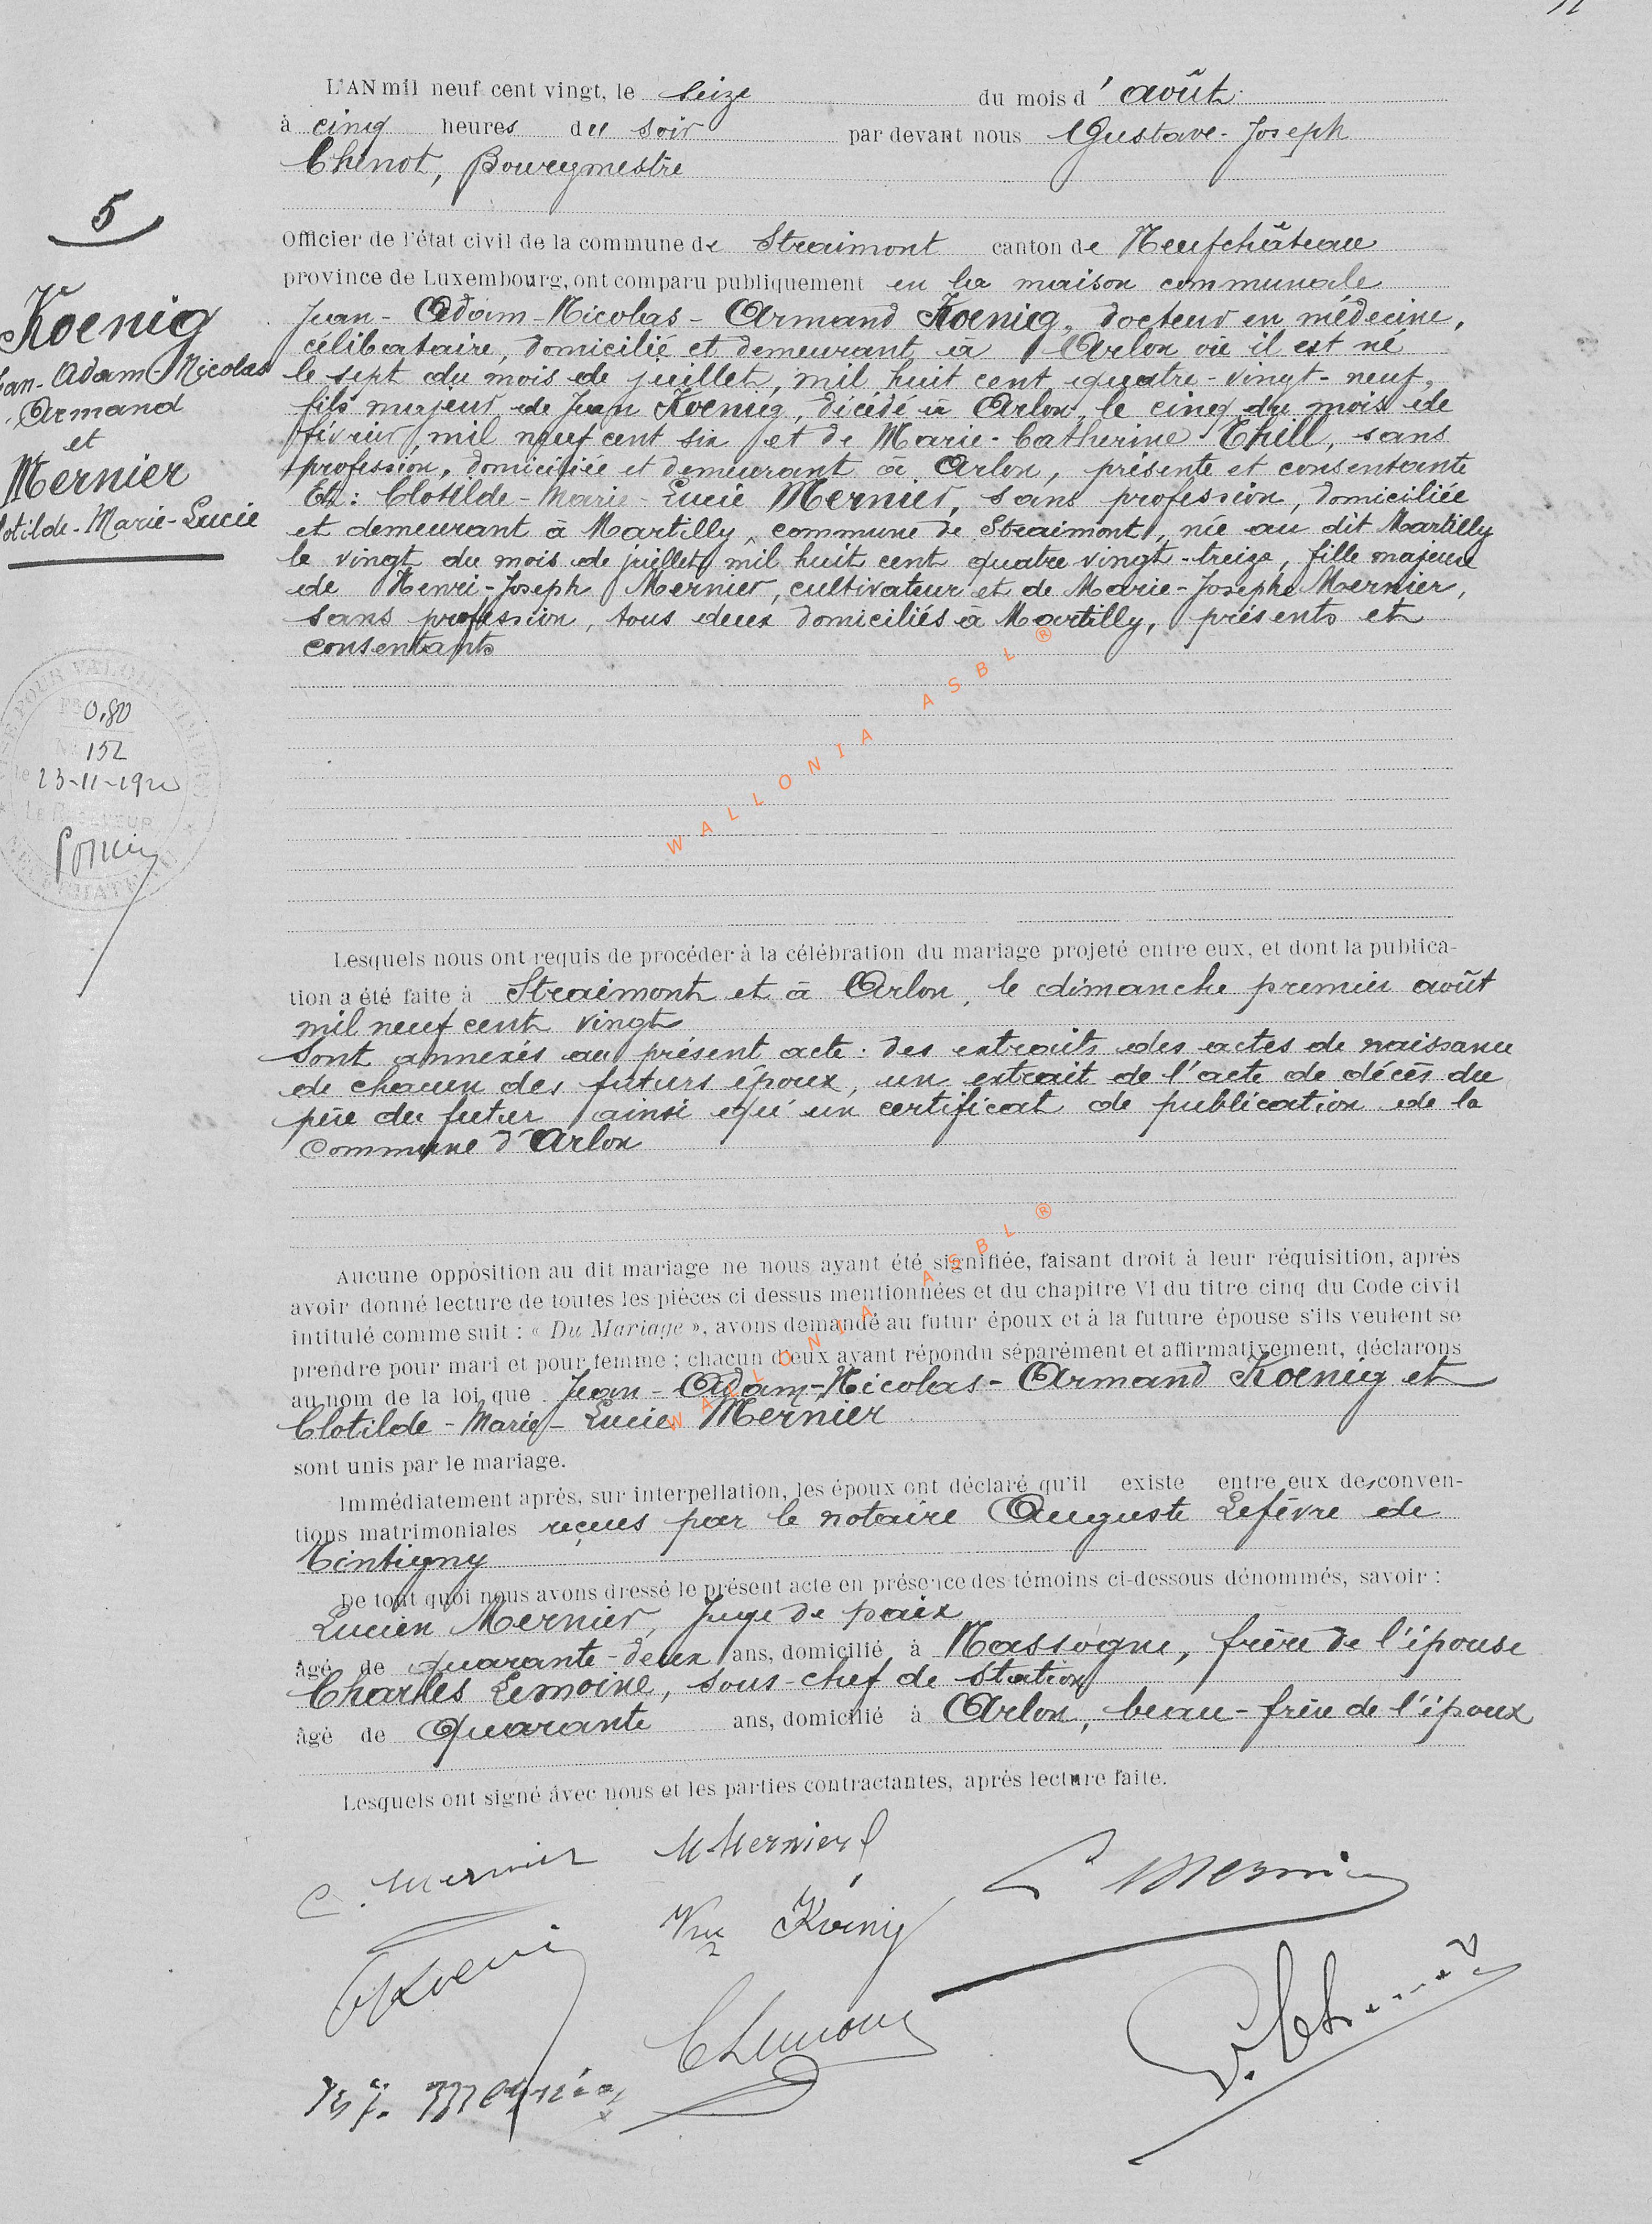 L'AN mil neuf cent vingt, le seize du mois d'août
à cinq heures du soir par devant nous Gustave-Joseph
Chenot, Bourgmestre
5
Officier de l'état civil de la commune de Straimont canton de Neufchâteau
province de Luxembourg, ont comparu publiquement en la maison communale
Koenig
Jean-Adam-Nicolas
Armand
et
Mernier
Clotilde-Marie-Lucie
Jean-Adam-Nicolas-Armand Koenig, docteur en médecine,
célibataire, domicilié et demeurant à Arlon où il est né
le sept du mois de juillet, mil huit cent quatre-vingt-neuf,
fils majeur de Jean Koenig, décédé à Arlon, le cinq du mois de
février mil neuf cent six et de Marie-Catherine Thill, sans
profession, domiciliée et demeurant à Arlon, présente et consentante
Et: Clotilde-Marie-Lucie Mernier, sans profession, domiciliée
et demeurant à Martilly, commune de Straimont, née au dit Martilly
le vingt du mois de juillet mil huit cent quatre vingt-treize, fille majeure
de Henri-Joseph Mernier, cultivateur et de Marie-Josephe Mernier,
sans profession, tous deux domiciliés à Martilly, présents et
consentants
0,80
152
le 23-11-1920
WALLONIA ASBL ®
Lesquels nous ont requis de procéder à la célébration du mariage projeté entre eux, et dont la publica-
tion a été faite à Straimont et à Arlon, le dimanche premier août
mil neuf cent vingt
Sont annexés au présent acte: des extraits des actes de naissance
de chacun des futurs époux, un extrait de l'acte de décès du
père du futur ainsi qu'un certificat de publication de la
commune d'Arlon
Aucune opposition au dit mariage ne nous ayant été signifiée, faisant droit à leur réquisition, après
avoir donné lecture de toutes les pièces ci dessus mentionnées et du chapitre VI du titre cinq du Code civil
intitulé comme suit : « Du Mariage », avons demandé au futur époux et à la future épouse s'ils veulent se
prendre pour mari et pour femme ; chacun d'eux ayant répondu séparément et affirmativement, déclarons
au nom de la loi que Jean-Adam-Nicolas-Armand Koenig et
Clotilde-Marie-Lucie Mernier
WALLONIA ASBL ®
sont unis par le mariage.
Immédiatement après, sur interpellation, les époux ont déclaré qu'il existe entre eux des conven-
tions matrimoniales reçues par le notaire Auguste Lefèvre de
Tintigny
De tout quoi nous avons dressé le présent acte en présence des témoins ci-dessous dénommés, savoir :
Lucien Mernier, Juge de paix
âgé de quarante-deux ans, domicilié à Nassogne, frère de l'épouse
Charles Lemoine, sous-chef de station
âgé de Quarante ans, domicilié à Arlon, beau-frère de l'époux
Lesquels ont signé avec nous et les parties contractantes, après lecture faite.
C. Mernier M Mernier L Mernier
Koenig Vve Koenig
CLemoine
H J. Mernier